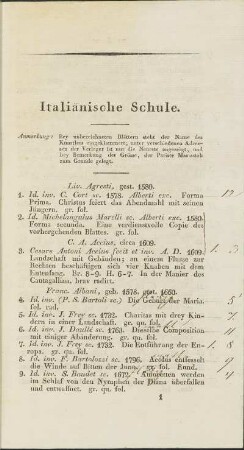 Italiänische Schule.
Anmerkung: Bey unbezeichneten Blättern steht der Name des
Künstlers
sen der Verleger ist nur die
bey Bemerkung der Grösse, der Pariser Maasstab
zum Grunde gelegt.
Liv. Agresti, gest. 1580.
1. Id. inv. C. Cort sc. 1578. Alberti exc. Forma
Prima. Christus feiert das Abendmahl mit seinen
Jüngern. gr. fol.
2. Id. Michelangelus Marelli sc. Alberti exc. 1580.
Forma secunda. Eine verdienstvolle Copie des
vorhergehenden Blattes. gr. fol.
C. A. Accius, circa 1609.
3. Cesare Antoni Accius fecit et inv. A. D. 1609.
Landschaft mit Gebäuden; an einem Flusse zur
Rechten beschäftigen sich vier Knaben mit dem
Entenfang. Br. 8-9. H. 6-7. In der Manier des
Cantagallina, brav radirt.
Franc. Albani, geb. 1578. gest. 1660.
4. Id. inv. (P. S. Bartoli sc.) Die Geburt der Maria.
fol.
5. Id. inv. J. Frey sc. 1732. Charitas mit drey Kin-
dern in einer Landschaft. gr. qu. fol.
6. Id. inv. J. Daullé sc. 1763. Dieselbe Composition
mit einiger Abänderung. gr. qu. fol.
7. Id. inv. J. Frey sc. 1732. Die Entführung der Eu-
ropa. gr. qu. fol.
8. Id. inv. F. Bartolozzi sc. 1796. Aeolus entfesselt
die Winde auf Bitten der Juno. gr. fol. Rund.
9. Id. inv. S. Baudet sc. 1672. Amoretten werden
im Schlaf von den Nymphen der Diana überfallen
und entwaffnet. gr. qu. fol.
1